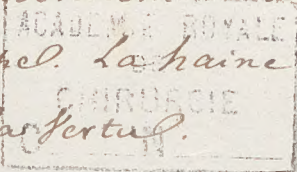 ACADEMIE ROYALE
rel. La haine
CHIRURGIE
la Vertu.